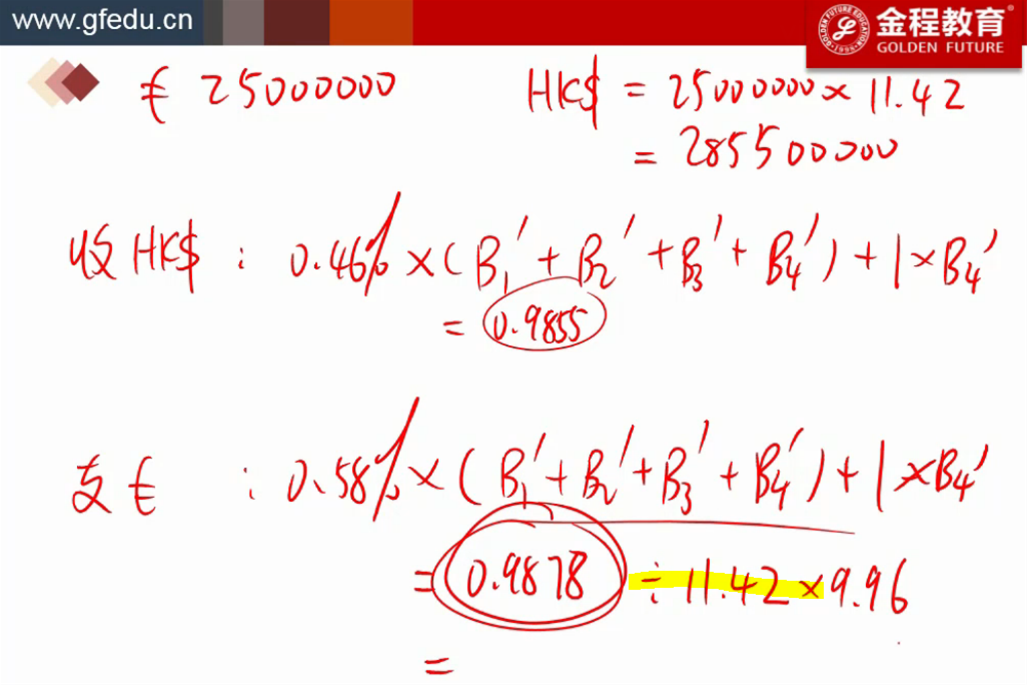 www.gfedu.cn
GOLDEN FUTURE EDUCATION
金程教育®
GOLDEN FUTURE
€ 25000000 HK$ = 25000000 × 11.42
= 285500000
收 HK$ : 0.46% × (B₁' + B₂' + B₃' + B₄') + 1 × B₄'
= 0.9855
支 € : 0.58% × (B₁' + B₂' + B₃' + B₄') + 1 × B₄'
= 0.9878 ÷ 11.42 × 9.96
=